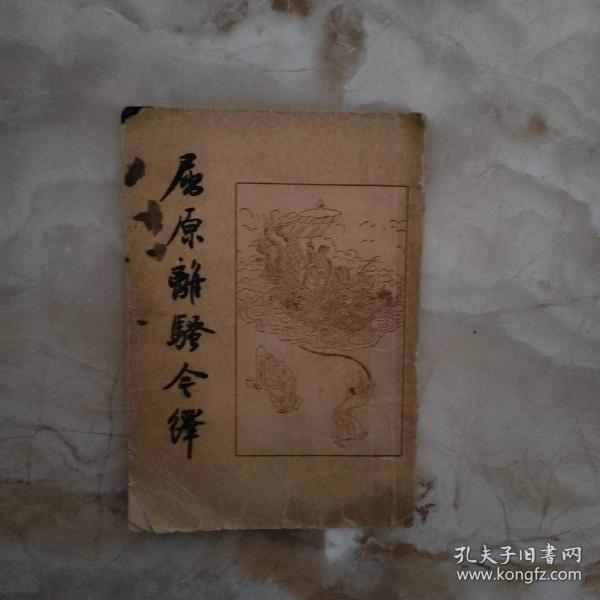 屈原離騷今繹
孔夫子旧書网
www.kongfz.com